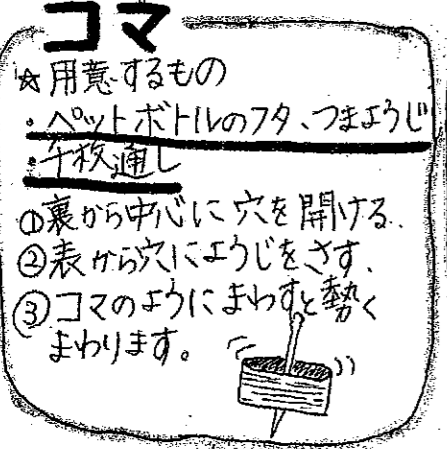 コマ
☆用意するもの
・ペットボトルのフタ、つまようじ
・千枚通し
①裏から中心に穴を開ける.
②表から穴にようじをさす.
③コマのようにまわすと勢く
まわります。